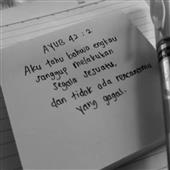 AYUB 42 : 2
Aku tahu bahwa engkau
sanggup melakukan
segala sesuatu,
dan tidak ada rencanamu
yang gagal.